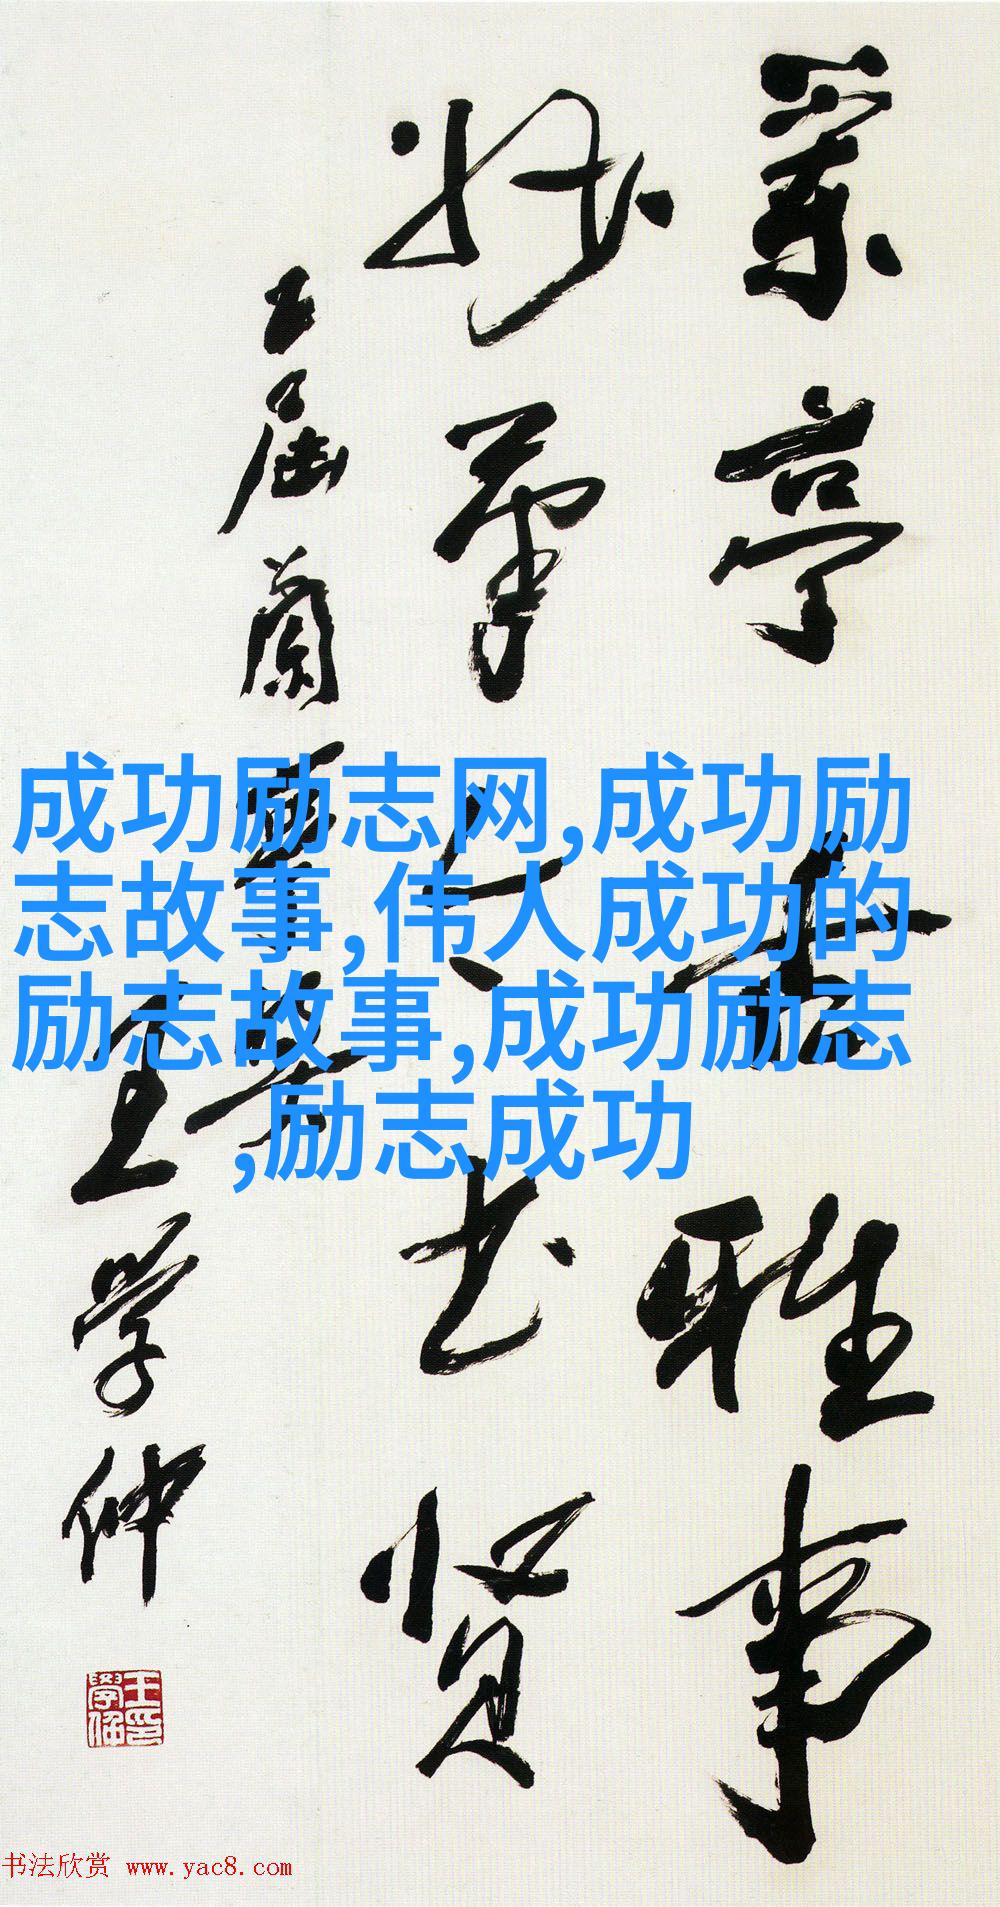 兰亭 雅事
笔 书贤
五届兰亭笔会
王学仲
成功励志网,成功励
志故事,伟人成功的
励志故事,成功励志
,励志成功
书法欣赏 www.yac8.com